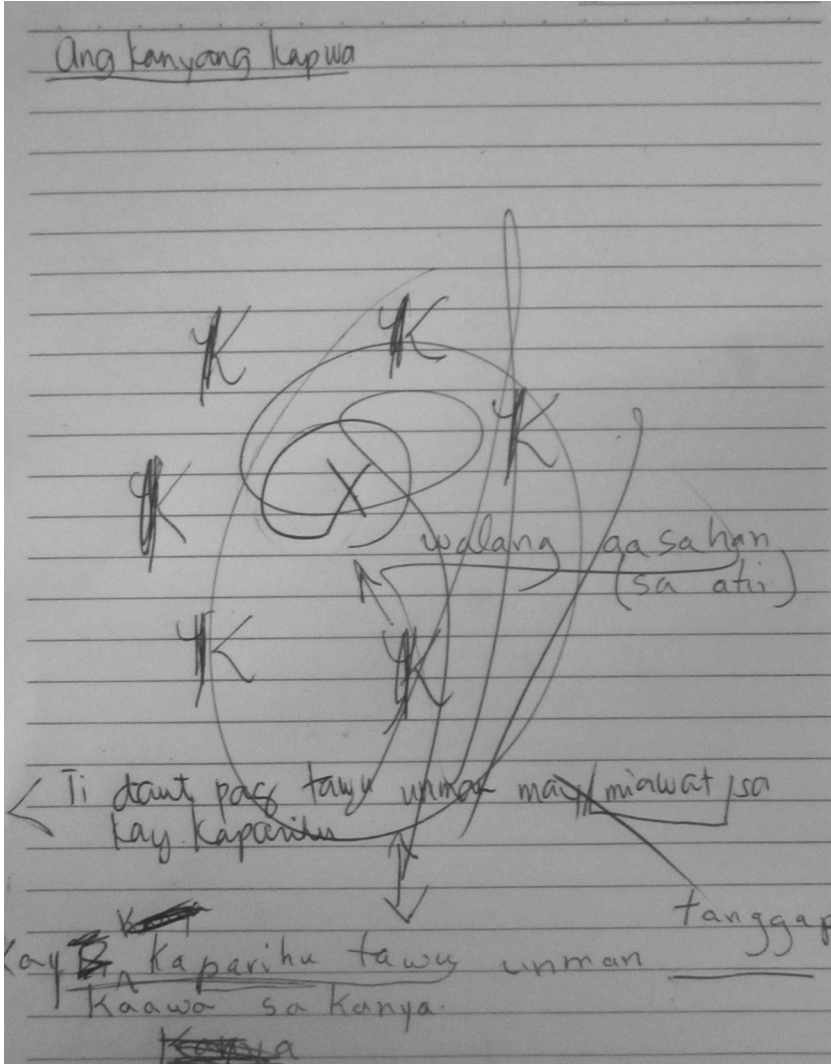 Ang kanyang kapwa
K
K
K
K
X
walang aasahan
(sa atin)
K
K
Ti daut pag tawu unman may miawat sa
kay kaparihu
tanggap
Kay kaparihu tawu unman
kaawa sa kanya.